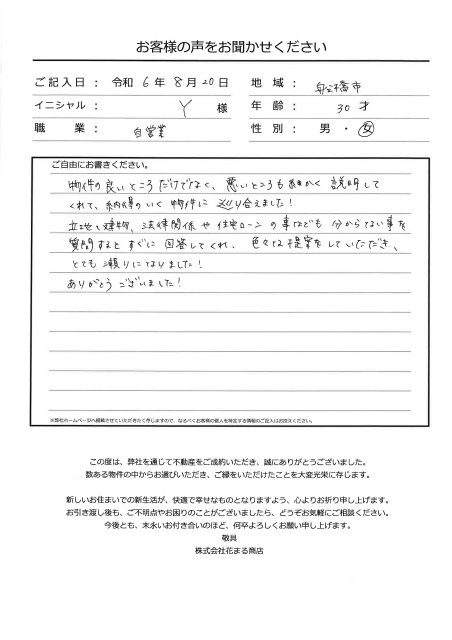 お客様の声をお聞かせください
ご記入日： 令和 6 年 8 月 20 日
地 域： 船橋市
イニシャル： Y 様
年 齢： 30 才
職 業： 自営業
性 別： 男 ・ 女
ご自由にお書きください。
物件の良いところだけでなく、悪いところも細かく説明して
くれて、納得のいく物件に巡り合えました!
立地、建物、法律関係や住宅ローンの事などでも分からない事を
質問するとすぐに回答してくれ、色々なご提案をしていただき、
とても頼りになりました!
ありがとうございました!
※弊社ホームページへ掲載させていただきたく存じますので、なるべくお客様の個人を特定する情報のご記入はお控えください。
この度は、弊社を通じて不動産をご成約いただき、誠にありがとうございました。
数ある物件の中からお選びいただき、ご縁をいただけたことを大変光栄に存じます。
新しいお住まいでの新生活が、快適で幸せなものとなりますよう、心よりお祈り申し上げます。
お引き渡し後も、ご不明点やお困りのことがございましたら、どうぞお気軽にご相談ください。
今後とも、末永いお付き合いのほど、何卒よろしくお願い申し上げます。
敬具
株式会社花まる商店